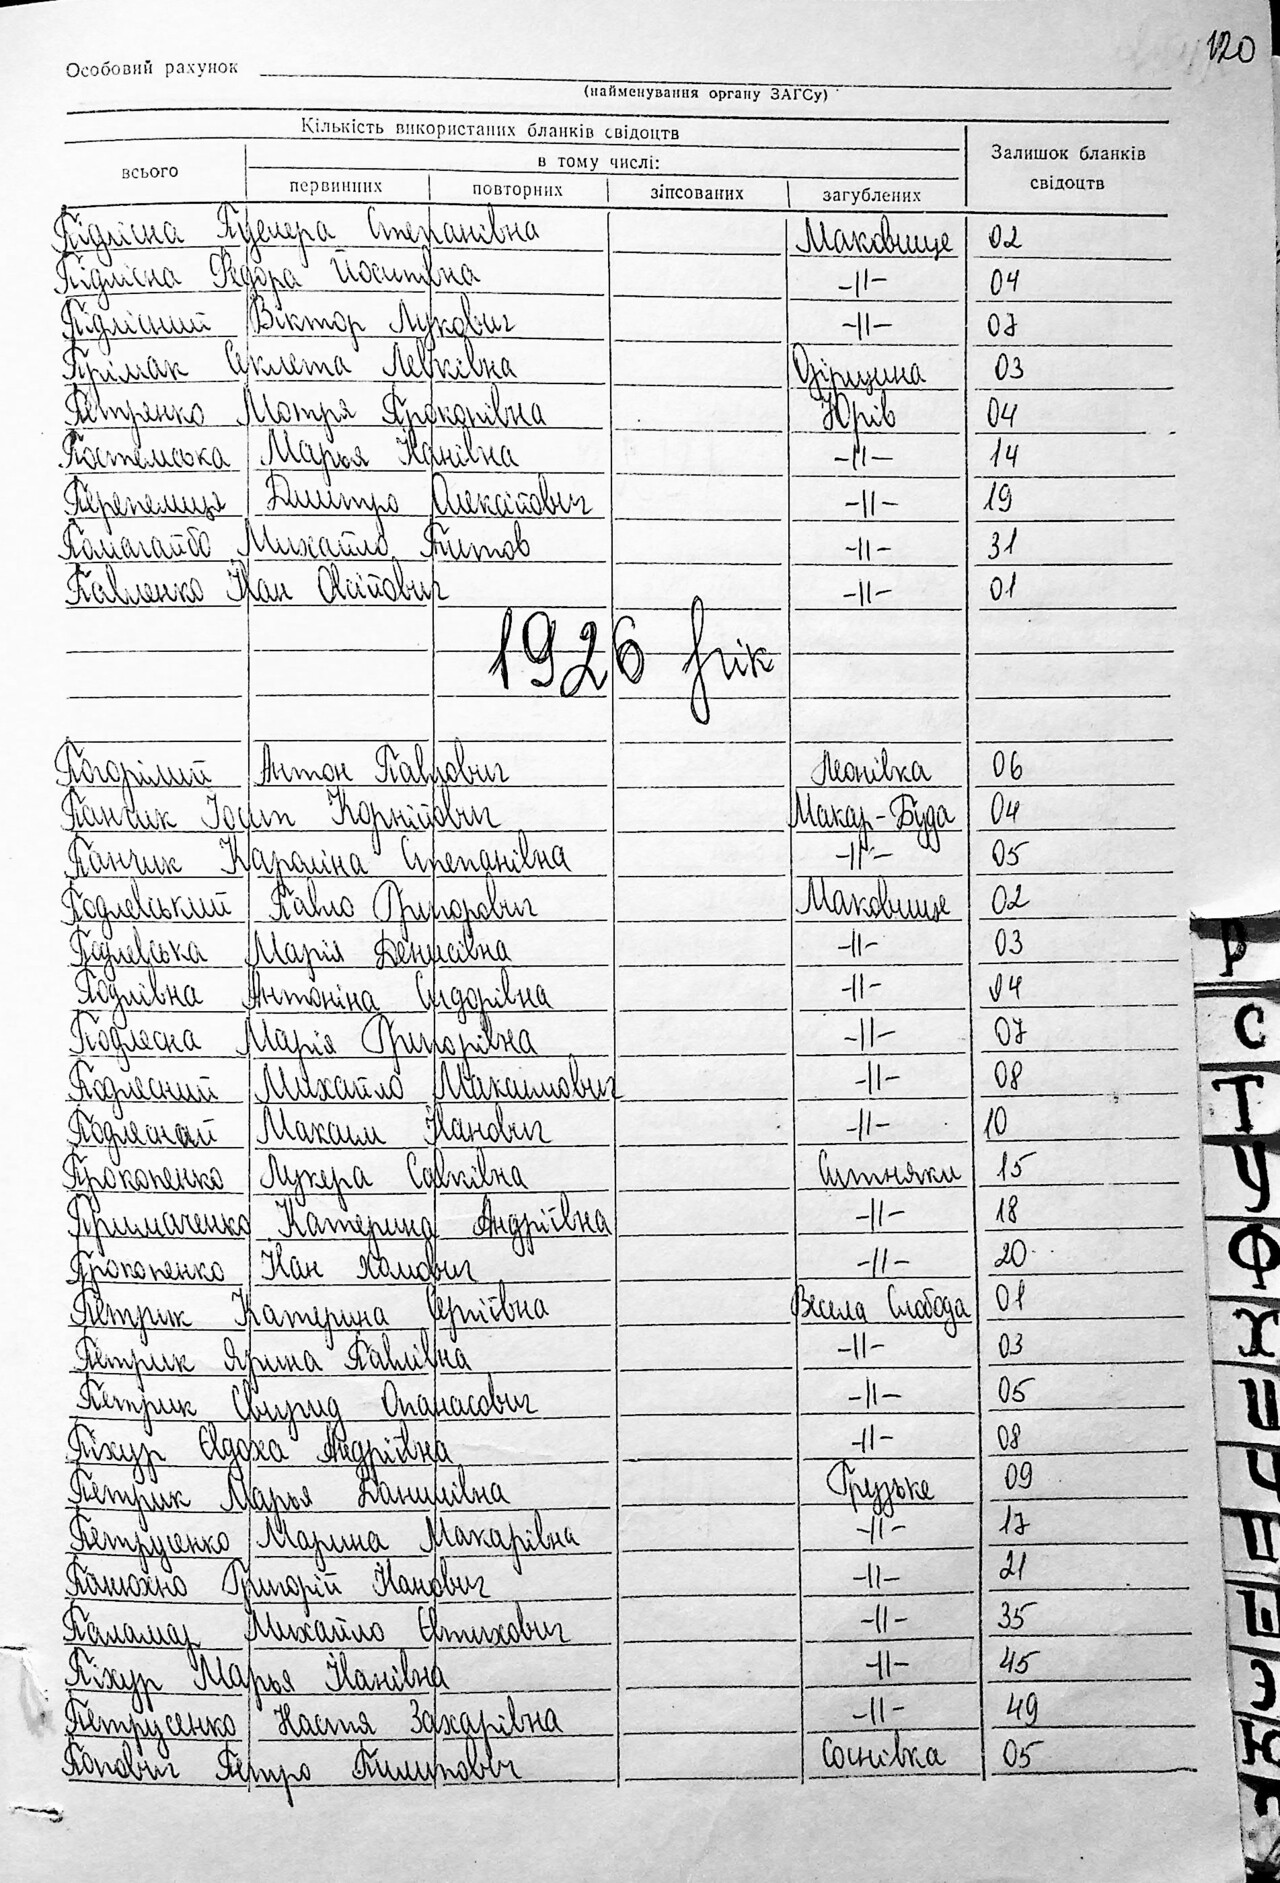 120
Особовий рахунок
(найменування органу ЗАГСу)
Кількість використаних бланків свідоцтв
Залишок бланків свідоцтв
в тому числі:
всього первинних повторних зіпсованих загублених
Підлісна Степанівна Маковище 02
Підлісна Федора Йосипівна -||- 04
Підлісний Віктор Лукович -||- 07
Прімак Секлета Левківна 03
Петренко Мотря Прокопівна Юрів 04
Марья Іванівна -||- 14
Перепелиця Дмитро Олексійович -||- 19
Помагайбо Михайло Титов -||- 31
Павленко Іван -||- 01
1926 рік
Погорілий Антон Павлович Леонівка 06
Панчик Йосип Корнійович Макар-Буда 04
Панчик Кароліна Степанівна -||- 05
Подлевський Павло Григорович Маковище 02
Подлевська Марія Денисівна -||- 03
Антоніна Сидорівна -||- 04
Подлесна Марія Григорівна -||- 07
Подлесний Михайло Максимович -||- 08
Подлесний Максим Іванович -||- 10
Прокопенко Лукера Савківна Ситняки 15
Примаченко Катерина Андріївна -||- 18
Прокопенко Іван Хомович -||- 20
Петрик Катерина Сергіївна Весела Слобода 01
Петрик Ярина Павлівна -||- 03
Петрик Свирид Опанасович -||- 05
Піхур Євдоха Андріївна -||- 08
Петрик Марья Данилівна Грузьке 09
Петрусенко Марина Макарівна -||- 17
Григорій Іванович -||- 21
Паламар Михайло Євтихович -||- 35
Піхур Марья Іванівна -||- 45
Петрусенко Настя Захарівна -||- 49
Попович Петро Пилипович Соснівка 05
Р
С
Т
У
Ф
Х